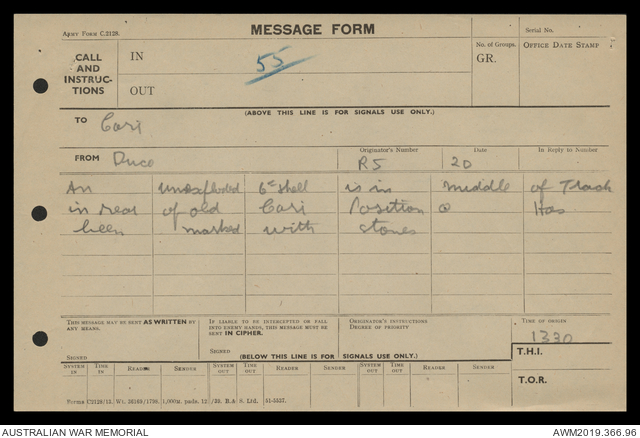 Army Form C.2128.
MESSAGE FORM
Serial No.
CALL AND INSTRUC-TIONS
IN
55
No. of Groups.
GR.
OFFICE DATE STAMP
OUT
(ABOVE THIS LINE IS FOR SIGNALS USE ONLY.)
TO Cari
FROM Duco
Originator's Number
R5
Date
20
In Reply to Number
An unexploded 6" shell is in middle of Track
in rear of old Cari Position @ Has
been marked with stones
THIS MESSAGE MAY BE SENT AS WRITTEN BY ANY MEANS.
SIGNED
IF LIABLE TO BE INTERCEPTED OR FALL INTO ENEMY HANDS, THIS MESSAGE MUST BE SENT IN CIPHER.
SIGNED
ORIGINATOR'S INSTRUCTIONS
DEGREE OF PRIORITY
TIME OF ORIGIN
1330
(BELOW THIS LINE IS FOR SIGNALS USE ONLY.)
T.H.I.
SYSTEM IN TIME IN READER SENDER SYSTEM OUT TIME OUT READER SENDER SYSTEM OUT TIME OUT READER SENDER
T.O.R.
Forms C2128/15. Wt. 1,000M. pads. 12/39. B.& S. Ltd. 51-5537.
AUSTRALIAN WAR MEMORIAL
AWM2019.366.96